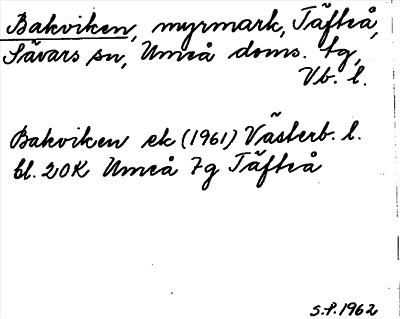 Bakviken, myrmark, Täfteå,
Sävars sn, Umeå doms. tg,
Vb. l.
Bakviken ek (1961) Västerb. l.
bl. 20K Umeå 7g Täfteå
S.P. 1962